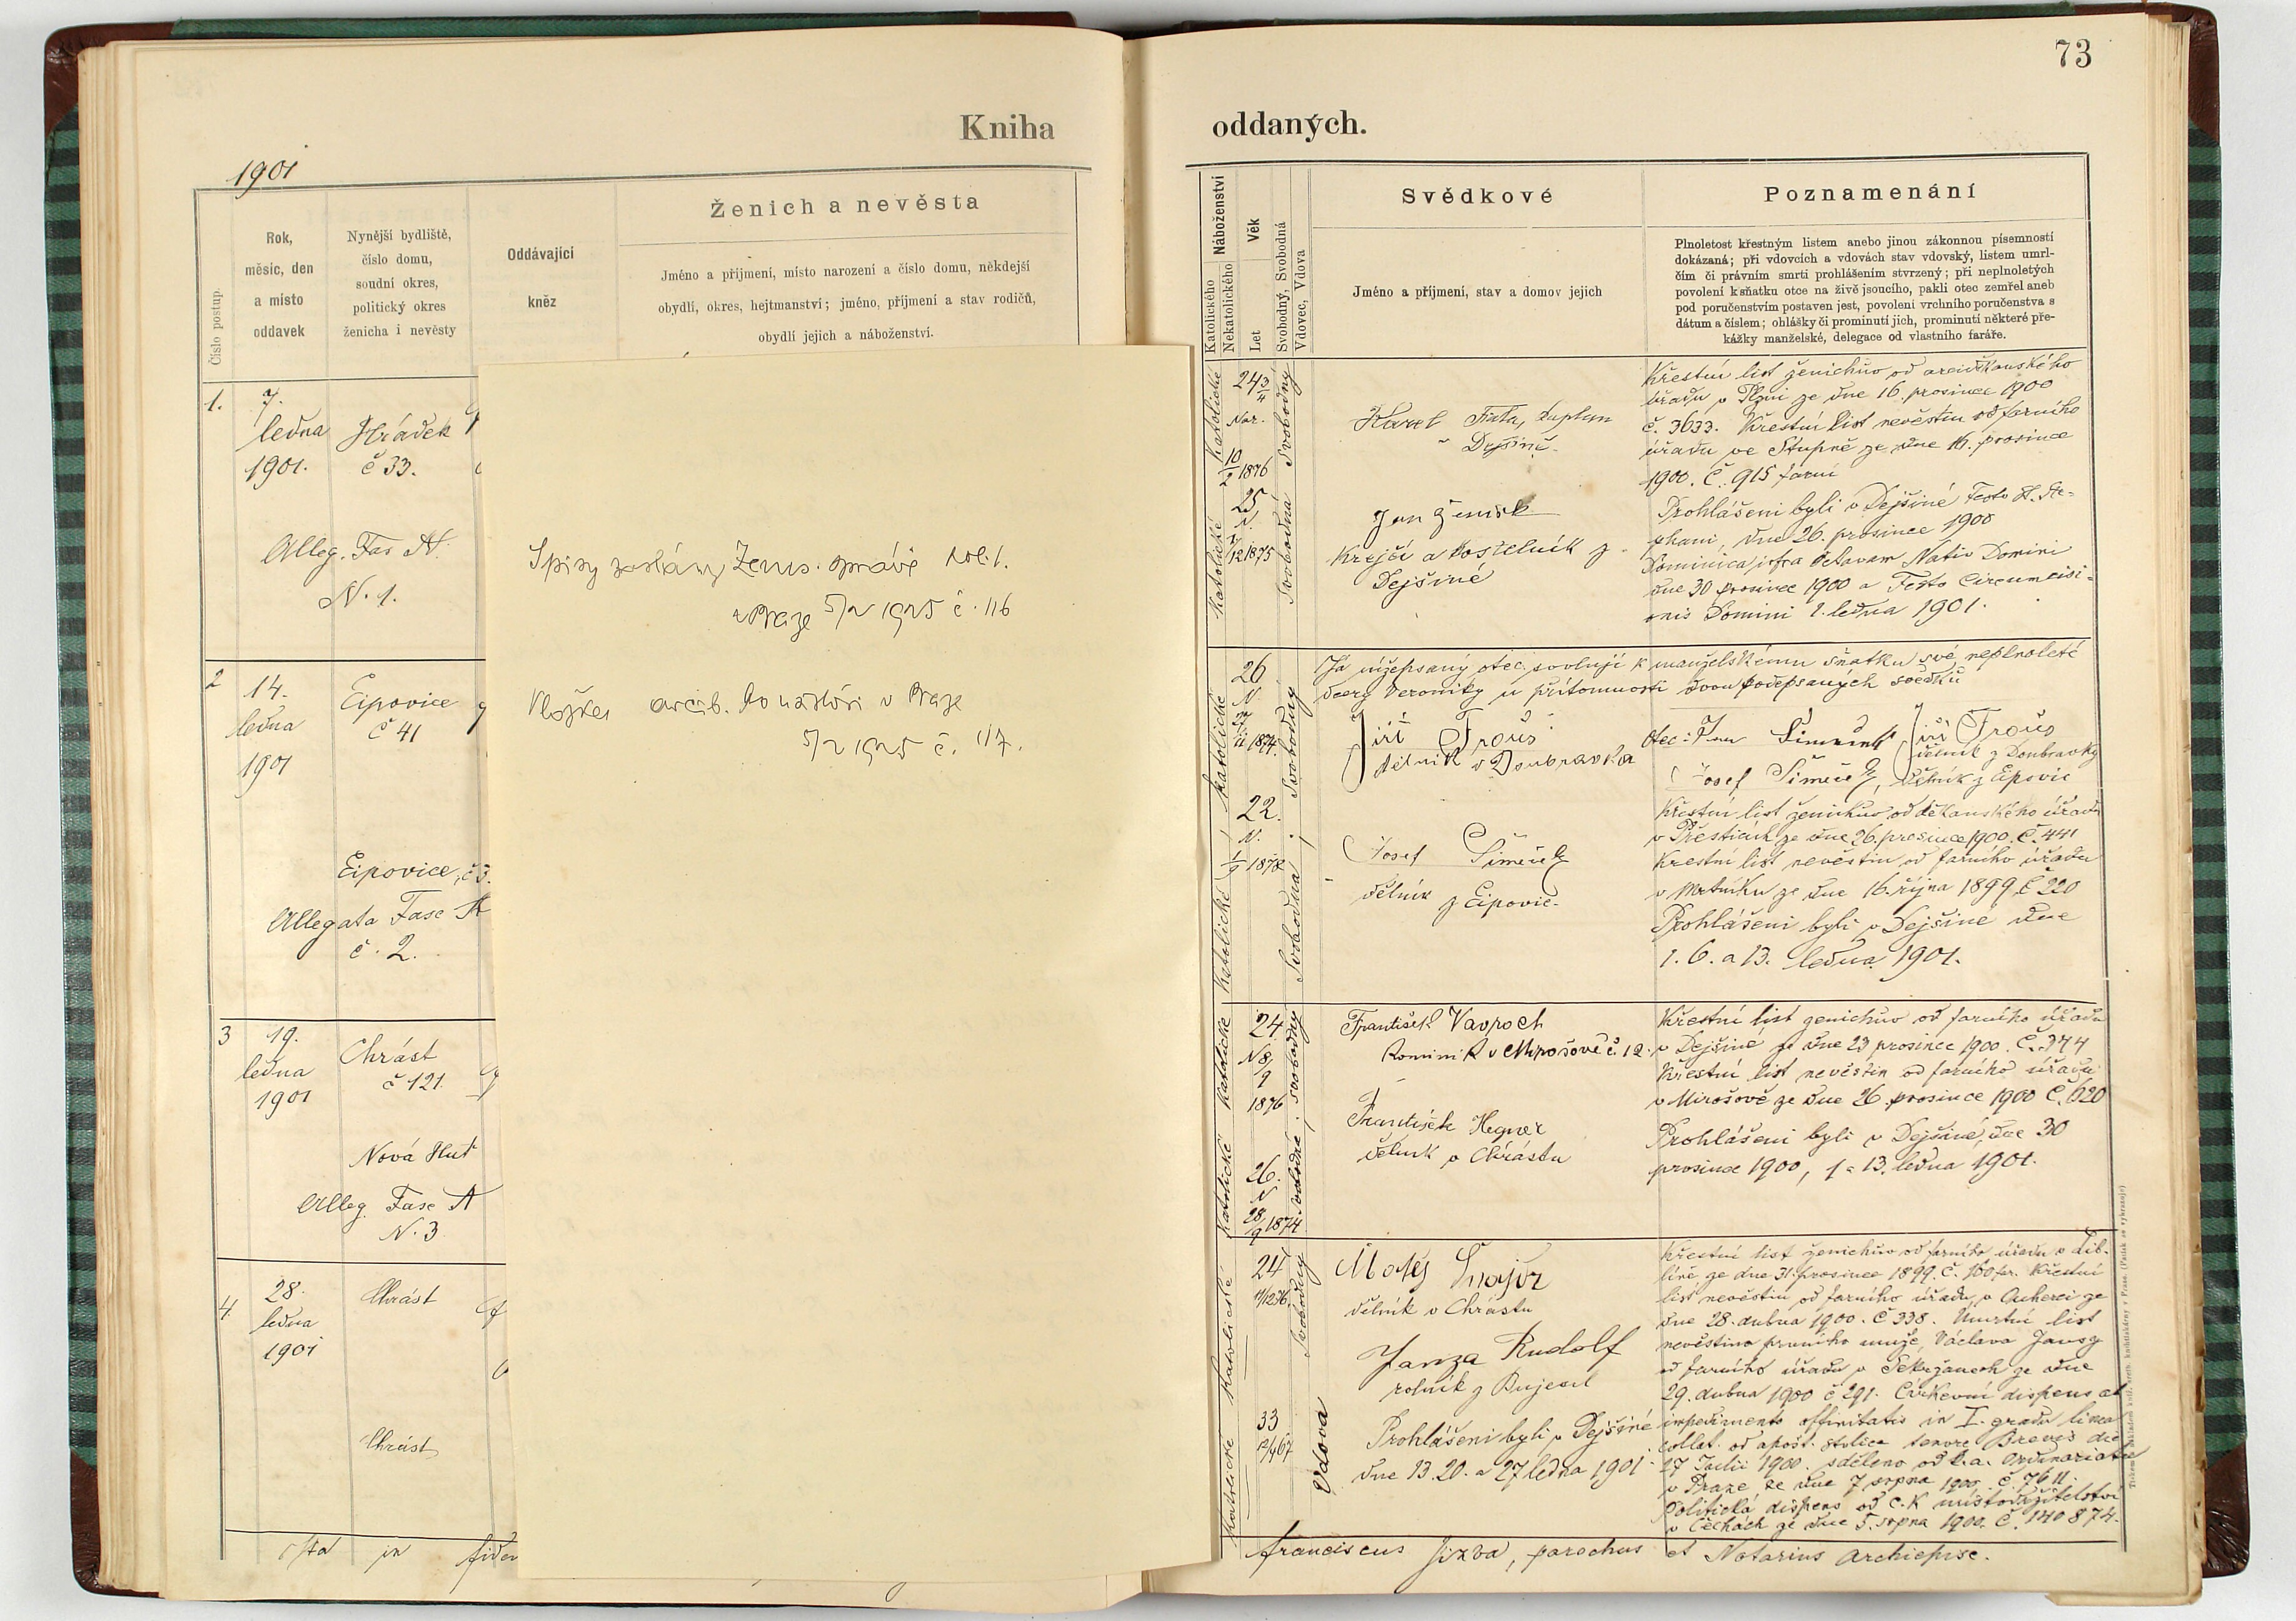 73
Kniha
oddaných.
1901
Číslo postup.
Rok,
měsíc, den
a místo
oddavek
Nynější bydliště,
číslo domu,
soudní okres,
politický okres
ženicha i nevěsty
Oddávající
kněz
Ženich a nevěsta
Jméno a příjmení, místo narození a číslo domu, někdejší
obydlí, okres, hejtmanství; jméno, příjmení a stav rodičů,
obydlí jejich a náboženství.
1.
7.
ledna
1901.
Hrádek
č 33.
Alleg. Fas A.
N. 1.
2
14.
ledna
1901
Eipovice
č 41
Eipovice, č 3.
Allegata Fasc A
č. 2.
3
19.
ledna
1901
Chrást
č 121
Nová Huť
Alleg. Fasc A
N. 3
4
28.
ledna
1901
Chrást
Chrást
Spisy zaslány Zems. správě
v Praze 5/2 1925 č. 116
arcib. konsistoři v Praze
5/2 1925 č. 117.
Náboženství
Katolického
Nekatolického
Věk
Let
Svobodný, Svobodná
Vdovec, Vdova
Svědkové
Jméno a příjmení, stav a domov jejich
Poznamenání
Plnoletost křestným listem anebo jinou zákonnou písemností
dokázaná; při vdovcích a vdovách stav vdovský, listem umrl-
čím či právním smrti prohlášením stvrzený; při neplnoletých
povolení k sňatku otce na živě jsoucího, pakli otec zemřel aneb
pod poručenstvím postaven jest, povolení vrchního poručenstva s
dátum a číslem; ohlášky či prominutí jich, prominutí některé pře-
kážky manželské, delegace od vlastního faráře.
Katolické
24 3/4
Nar.
10/2 1876
Svobodný
Katolické
25
N.
12 1875
Svobodná
Karel Fiala, kaplan
v Dejšině.
Jan Ženíšek
Krejčí a kostelník z
Dejšiné
Křestní list ženichův od arciděkanského
úřadu v Plzni ze dne 16. prosince 1900
č. 3633. Křestní list nevěstin od farního
úřadu ve Stupně ze dne 16. prosince
1900. Č. 915 farní
Prohlášeni byli v Dejšiné Festo St. Ste-
phani, dne 26. prosince 1900
Dominica infra Octavam Nativ Domini
dne 30 prosince 1900 a Festo Circumcisi-
onis Domini 1. ledna 1901.
Já nížepsaný otec svoluji k manželskému sňatku své neplnoleté
dcery Veroniky u přítomnosti dvou podepsaných svědků
Katolické
26
N.
27/11 1874.
Svobodný
Jiří Trouš
dělník v Doubravka
Otec: Jan Šimeček
Jiří Trouš
dělník z Doubravky
Josef Šimeček, dělník z Epovic
Katolické
22.
N.
1/9 1878
Svobodná
Josef Šimeček
dělník z Eipovic.
Křestní list ženichův od děkanského úřadu
v Přesticích ze dne 26. prosince 1900. č. 441
Křestní list nevěstin od farního úřadu
v Mrtníku ze dne 16. října 1899 č 220
Prohlášeni byli v Dejšiné dne
1. 6. a 13. ledna 1901.
Katolické
24
N 8/
9
1876
svobodný
František Vavroch
Kominík v Mirošově č. 12.
Křestní list ženichův od farního úřadu
v Dejšiné ze dne 23 prosince 1900. Č. 344
Křestní list nevěstin od farního úřadu
v Mirošově ze dne 26. prosince 1900 Č. 620
Katolické
26.
N
28/9 1874
Svobodná
František Hegner
dělník v Chrástu
Prohlášeni byli v Dejšiné, dne 30
prosince 1900, 1 a 13. ledna 1901.
Katolické
24
11/12 76.
Svobodný
Matěj Šnajdr
dělník v Chrástu
Janza Rudolf
rolník z Bujesil
Katolické
33
12/4 67
Vdova
Prohlášeni byli v Dejšiné
dne 13. 20. a 27 ledna 1901.
Křestní list ženichův od farního úřadu v Lib-
líně ze dne 31. prosince 1899. č. 160 far. Křestní
list nevěstin od farního úřadu v Ouherci ze
dne 28. dubna 1900. Č 338. Úmrtní list
nevěstina prvního muže, Václava Janzy
od farního úřadu v Terezanech ze dne
29. dubna 1900 č 291. Církevní dispens ab
impedimento affinitatis in I. gradu linea
collat. od apošt. stolice tenore Brevis die
27 Julii 1900. sděleno od k.a. Ordinariatu
v Praze ze dne 7 srpna 1900. č. 7611.
Politická dispens od c.k místodržitelství
v Čechách ze dne 5. srpna 1900. č. 140874.
Ita in fidem
franciscus Jizba, parochus et Notarius Archiepisc.